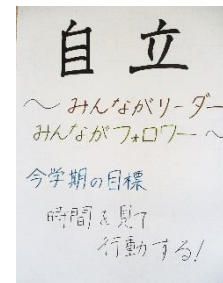 自立
～みんながリーダー
みんながフォロワー～
今学期の目標
時間を見て
行動する！